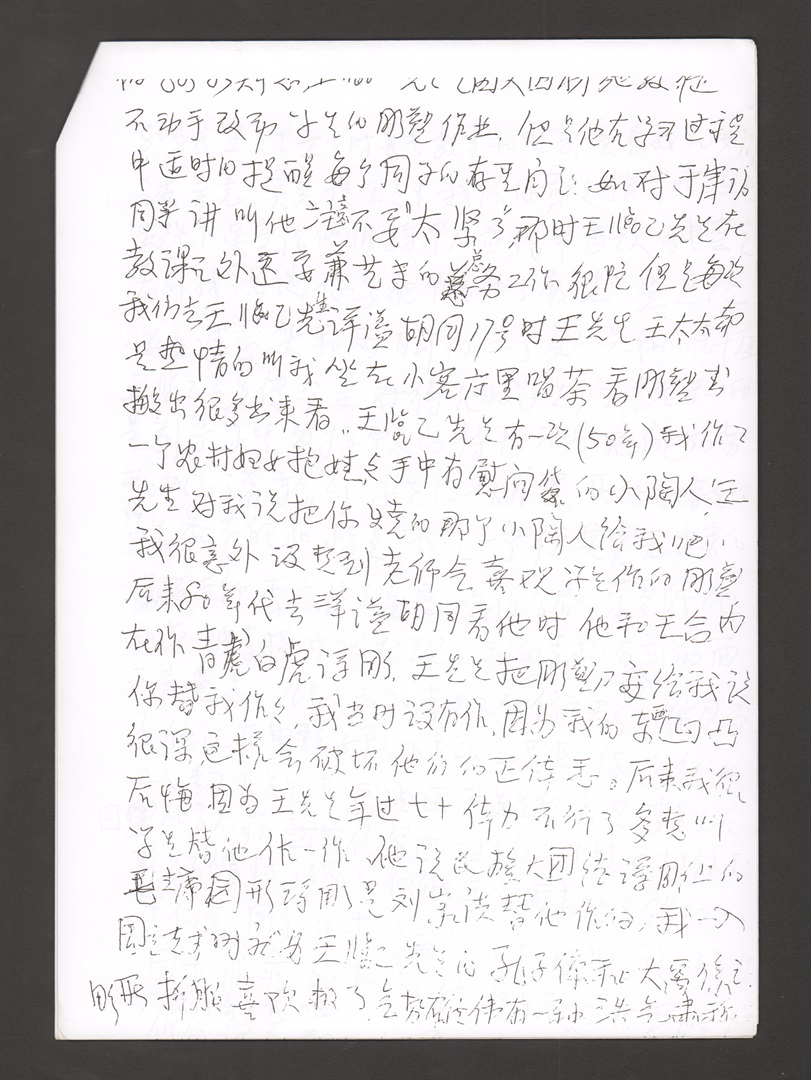 不动手改动学生的雕塑作业，但是他在学习过程
中适时的提醒每个同学的存在问题 如对于津访
同学讲叫他注意不要"太紧了"那时王临乙先生在
教课之外还要兼艺术的总务工作很忙但是每次
我们去王临乙先生洋溢胡同17号时王先生王太太都
是热情的叫我坐在小客厅里喝茶看雕塑书
搬出很多书来看。王临乙先生有一次(50年)我作了
一个农村妇女抱娃娃手中有慰问袋的小陶人，王
先生对我说把你烧的那个小陶人给我吧！
我很意外没想到老师会喜欢学生作的雕塑
后来80年代去洋溢胡同看他时他和王合内
在作青虎白虎浮雕，王先生把雕塑刀交给我说
你替我作作，我当时没有作，因为我的凹凸
很深这样会破坏他们的正体感。后来我很
后悔因为王先生年过七十体力不行了多想叫
学生替他作一作，他说民族大团结浮雕上的
毛主席圆形浮雕是刘家洪替他作的，我一入
国立艺专时就为王临乙先生的孔子像和大禹像之
雕形折服喜欢极了气势雄伟有一种浩气